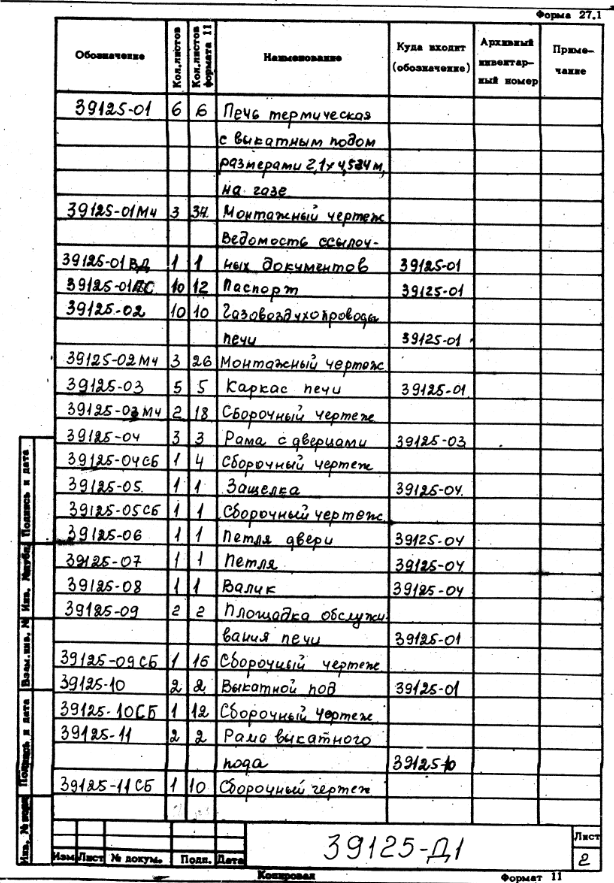 Форма 27.1
Обозначение Кол.листов Кол.листов формата 11 Наименование Куда входит (обозначение) Архивный инвентарный номер Примечание
39125-01 6 6 Печь термическая
с выкатным подом
размерами 2,1х4,524м,
на газе
39125-01МЧ 3 34 Монтажный чертеж
Ведомость ссылоч-
39125-01ВД 1 1 ных документов 39125-01
39125-01ПС 10 12 Паспорт 39125-01
39125-02 10 10 Газовоздухопроводы
печи 39125-01
39125-02МЧ 3 26 Монтажный чертеж
39125-03 5 5 Каркас печи 39125-01
39125-03МЧ 2 18 Сборочный чертеж
39125-04 3 3 Рама с дверцами 39125-03
39125-04СБ 1 4 Сборочный чертеж
39125-05 1 1 Защелка 39125-04
39125-05СБ 1 1 Сборочный чертеж
39125-06 1 1 Петля двери 39125-04
39125-07 1 1 Петля 39125-04
39125-08 1 1 Валик 39125-04
39125-09 2 2 Площадка обслужи-
вания печи 39125-01
39125-09СБ 1 16 Сборочный чертеж
39125-10 2 2 Выкатной под 39125-01
39125-10СБ 1 12 Сборочный чертеж
39125-11 2 2 Рама выкатного
пода 39125-10
39125-11СБ 1 10 Сборочный чертеж
Подпись и дата
Взам.инв. №
Подпись и дата
Изм Лист № докум. Подп. Дата
39125-Д1
Лист
2
Копировал
Формат 11